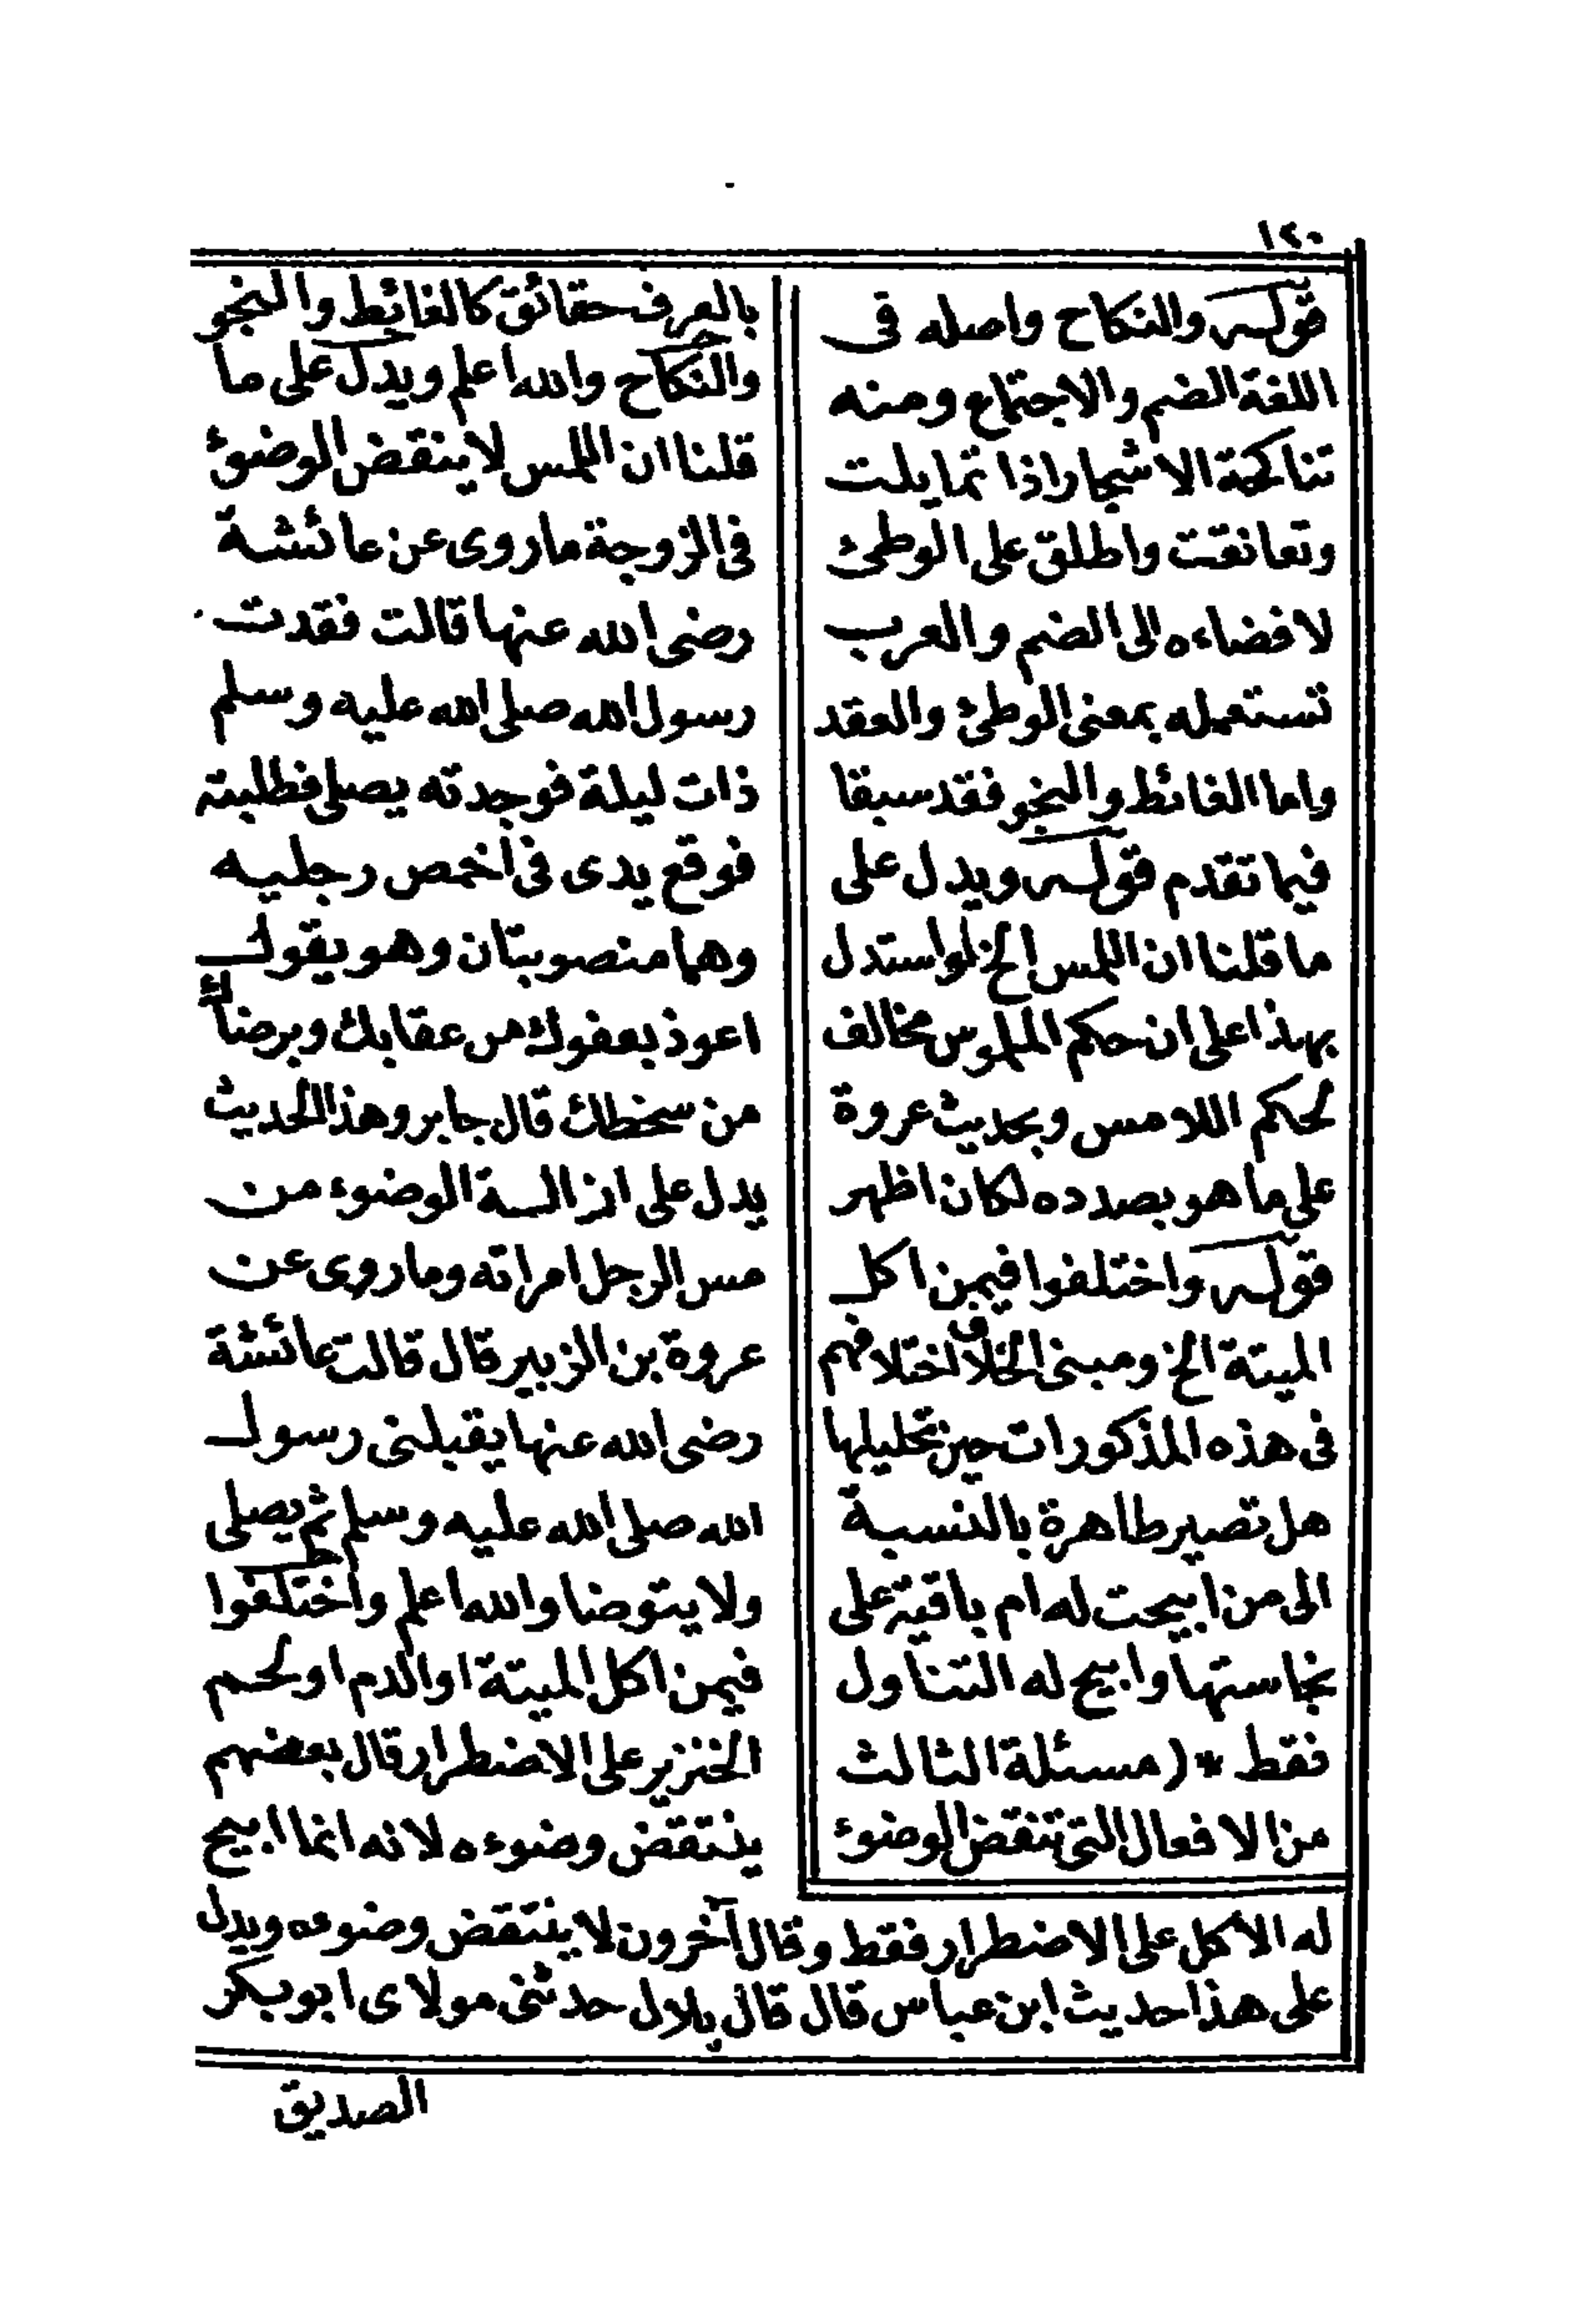 ١٤٠
قوله والنكاح واصله فى
اللغة الضم والاجتماع ومنه
تناكحة الاشجار اذا تمايلت
وتعانقت واطلق على الوطئ
لافضاءه الى الضم والعرب
تستعمله بمعنى الوطئ والعقد
واما الغائط والنجو فقد سبقا
فيما تقدم قوله ويدل على
ما قلنا ان اللمس الخ لو استدل
بهذا على ان حكم الملموس مخالف
لحكم اللامس وبحديث عروة
على ما هو بصدده لكان اظهر
قوله واختلفوا فيمن اكل
الميتة الخ ومبنى الخلاف اختلافهم
فى هذه المذكورات حين تحليلها
هل تصير طاهرة بالنسبة
الى من ابيحت له ام باقية على
نجاستها وابيح له التناول
نقط * (مسئلة الثالث
من الافعال التى تنقض الوضوء
بالعرف حقائق كالغائط والنجو
والنكاح والله اعلم ويدل على ما
قلنا ان اللمس لا ينقض الوضوئ
فى الزوجة ما روى عن عائشة
رضى الله عنها قالت فقدت
رسول الله صلى الله عليه وسلم
ذات ليلة فوجدته يصلى فطلبته
فوقع يدى فى اخمص رجليه
وهما منصوبتان وهو يقول
اعوذ بعفوك من عقابك وبرضاك
من سخطك قال جابر وهذا الحديث
يدل على ازالة الوضوء من
مس الرجل امراته وما روى عن
عروة بن الزبير قال قالت عائشة
رضى الله عنها يقبلنى رسول
الله صلى الله عليه وسلم ثم يصلى
ولا يتوضا والله اعلم واختلفوا
فيمن اكل الميتة او الدم او لحم
الخنزير على الاضطرار قال بعضهم
ينتقض وضوءه لانه انما ابيح
له الاكل على الاضطرار فقط وقال آخرون لا ينتقض وضوءه ويدل
على هذا حديث ابن عباس قال قال بلال حدثنى مولاى ابو بكر
الصديق